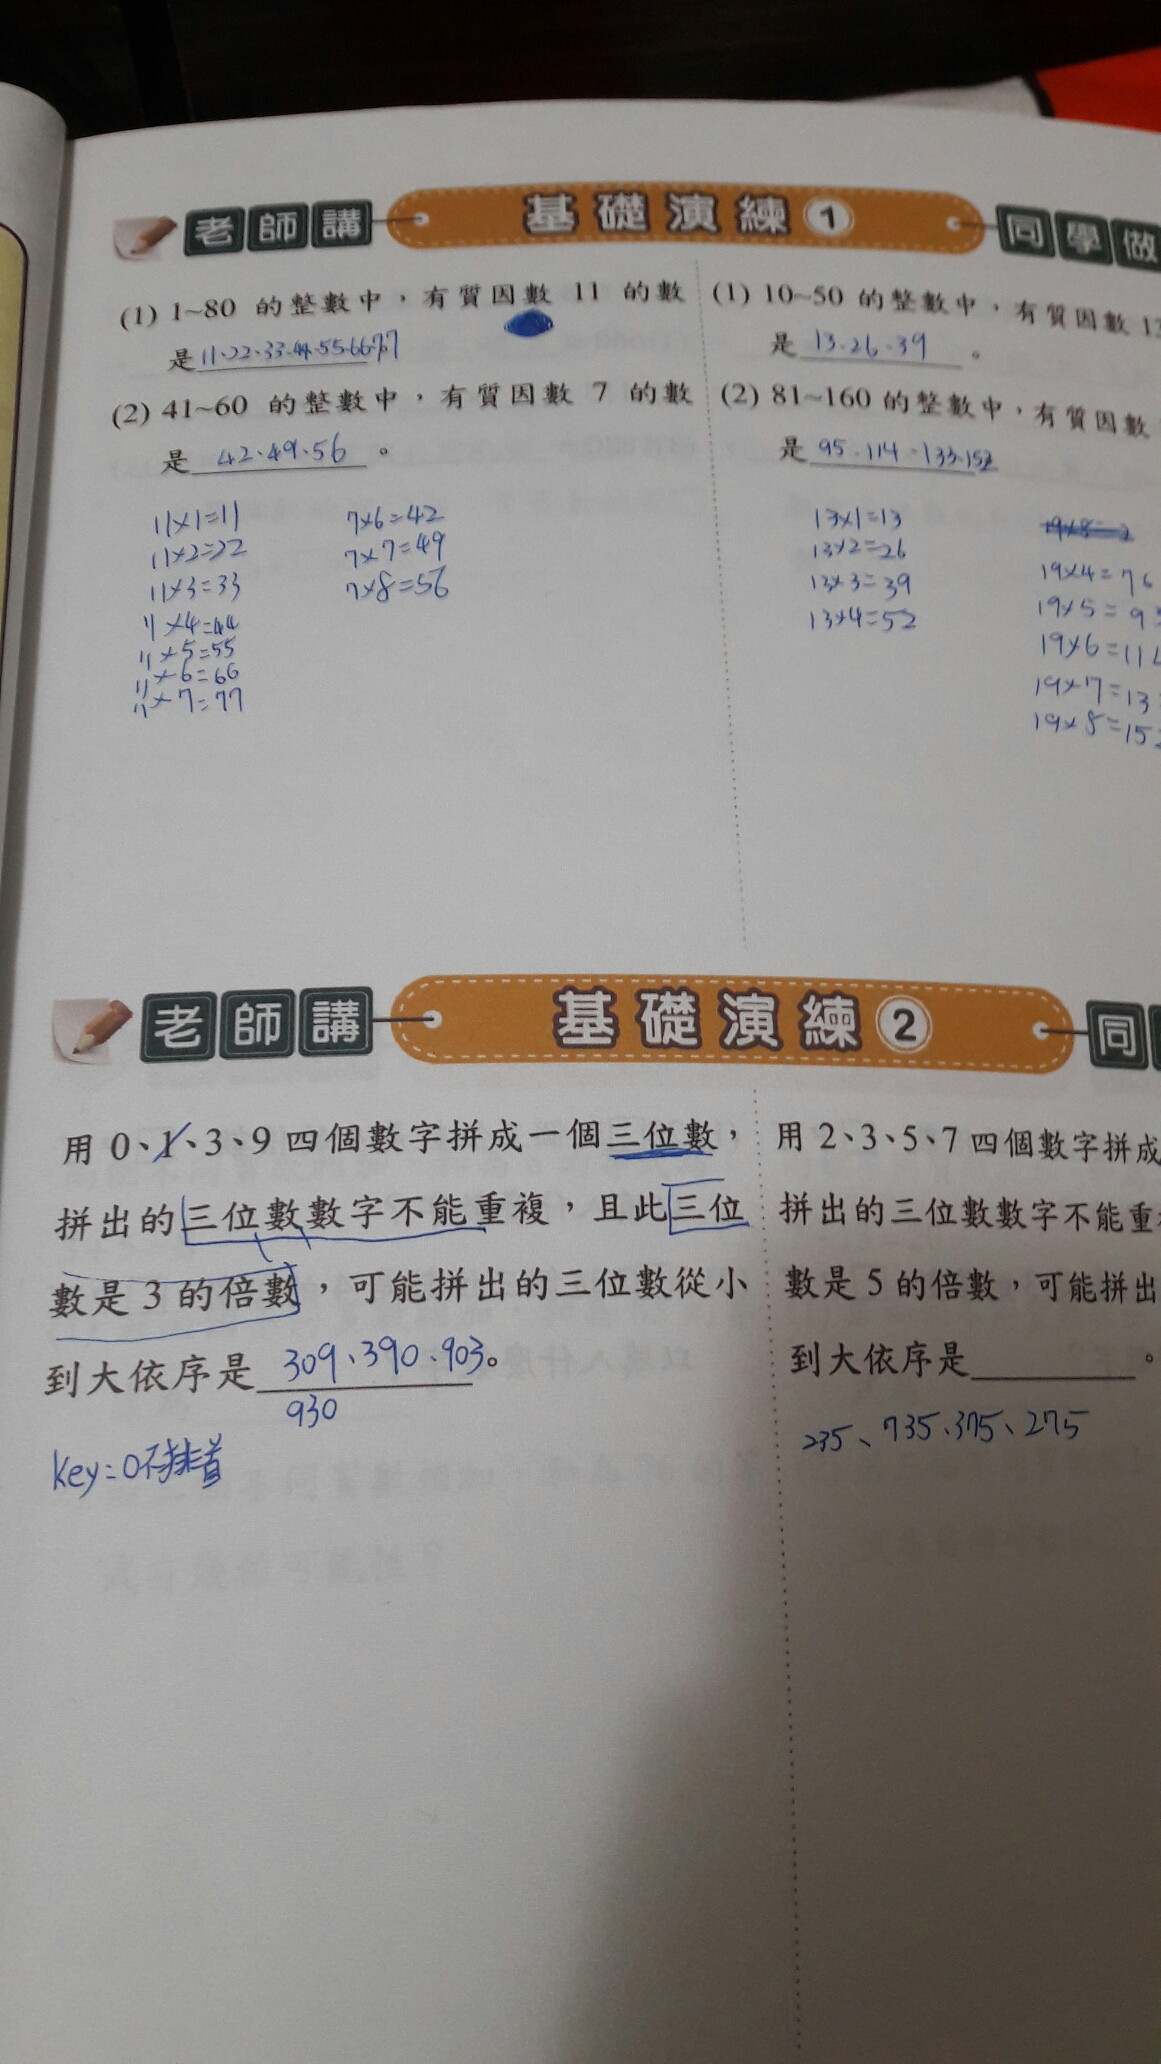 老師講 基礎演練 1 同學做
(1) 1~80 的整數中，有質因數 11 的數
是 11.22.33.44.55.66.77
(2) 41~60 的整數中，有質因數 7 的數
是 42.49.56 。
11×1=11
11×2=22
11×3=33
11×4=44
11×5=55
11×6=66
11×7=77
7×6=42
7×7=49
7×8=56
(1) 10~50 的整數中，有質因數 13
是 13.26.39 。
(2) 81~160 的整數中，有質因數
是 95.114.133.152
13×1=13
13×2=26
13×3=39
13×4=52
19×8=2
19×4=76
19×5=95
19×6=114
19×7=133
19×8=152
老師講 基礎演練 2 同
用 0、1、3、9 四個數字拼成一個三位數，
拼出的三位數數字不能重複，且此三位
數是 3 的倍數，可能拼出的三位數從小
到大依序是 309、390、903。
930
key=0不排首
用 2、3、5、7 四個數字拼成
拼出的三位數數字不能重複
數是 5 的倍數，可能拼出
到大依序是 。
235、735、375、275